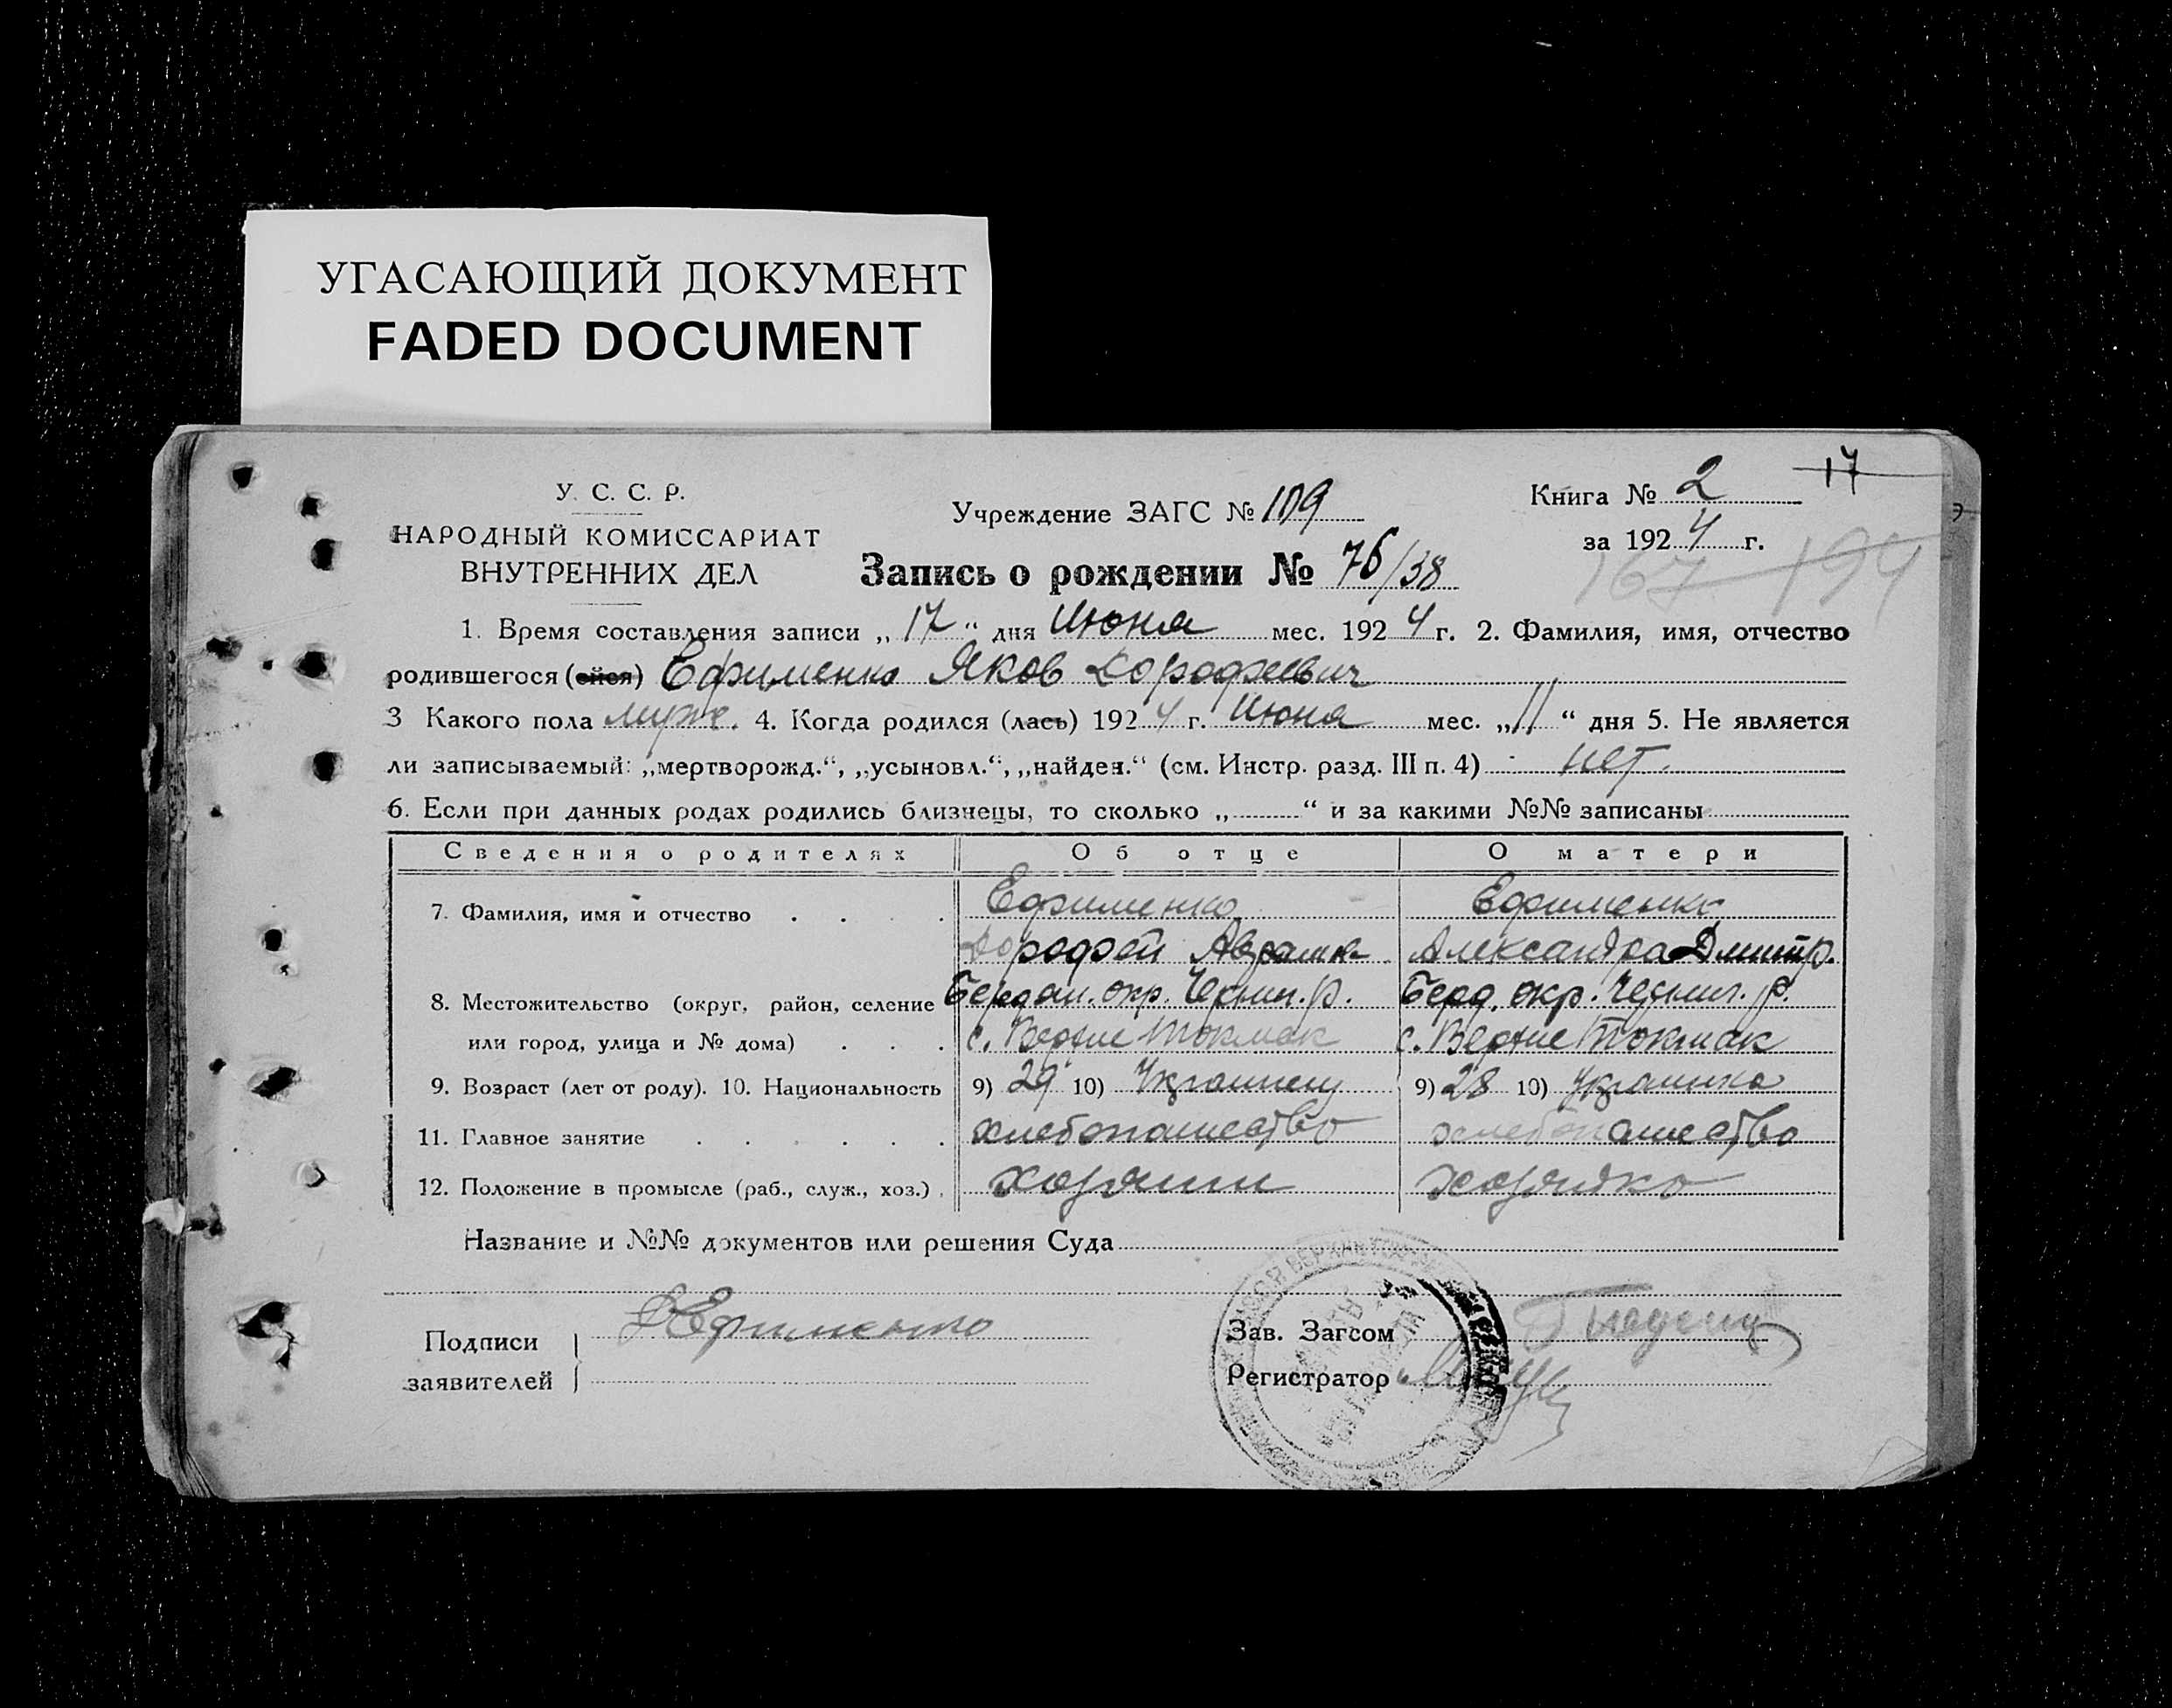 УГАСАЮЩИЙ ДОКУМЕНТ
FADED DOCUMENT
17
У. С. С. Р.
НАРОДНЫЙ КОМИССАРИАТ
ВНУТРЕННИХ ДЕЛ
Учреждение ЗАГС № 109
Книга № 2
за 1924 г.
167 194
Запись о рождении № 76/38
1. Время составления записи „17“ дня Июня мес. 1924 г. 2. Фамилия, имя, отчество
родившегося (ейся) Ефименко Яков Дорофеевич
3 Какого пола муж. 4. Когда родился (лась) 1924 г. Июня мес. „11“ дня 5. Не является
ли записываемый: „мертворожд.“, „усыновл.“, „найден.“ (см. Инстр. разд. III п. 4) нет.
6. Если при данных родах родились близнецы, то сколько „......“ и за какими №№ записаны
Сведения о родителях Об отце О матери
7. Фамилия, имя и отчество . . . . Ефименко Ефименко
Дорофей Александра Дмитр.
8. Местожительство (округ, район, селение Бердян. окр. Черниг. р. Берд. окр. Черниг. р.
или город, улица и № дома) . . . с. Верхне Токмак с. Верхне Токмак
9. Возраст (лет от роду). 10. Национальность 9) 29 10) Украинец 9) 28 10) Украинка
11. Главное занятие . . . . . . хлебопашество хлебопашество
12. Положение в промысле (раб., служ., хоз.) . хозяин хозяйка
Название и №№ документов или решения Суда
Подписи
заявителей
Ефименко
Зав. Загсом
Регистратор